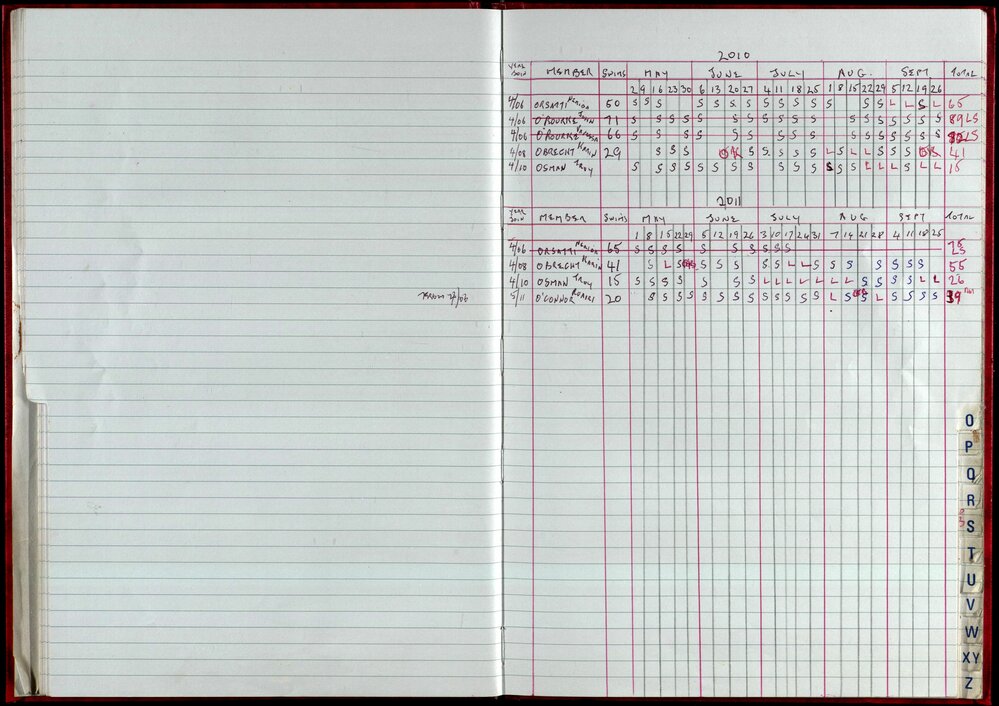 2010
YEAR JOIN MEMBER SWIMS MAY JUNE JULY AUG. SEPT TOTAL
2 9 16 23 30 6 13 20 27 4 11 18 25 1 8 15 22 29 5 12 19 26
4/06 ORSATTI 50 S S S S S S S S S S S S S S L L S L 65
4/06 O'ROURKE JOHN 71 S S S S S S S S S S S S S S S S S S 89 LS
4/06 O'ROURKE 66 S S S S S S S S S S S S S S S S LS
4/08 OBRECHT KARIN 29 S S S S S S S S L S L L S S S 41
4/10 OSMAN TROY S S S S S S S S S S S S S L L L S L L 15
2011
YEAR JOIN MEMBER SWIMS MAY JUNE JULY AUG SEPT TOTAL
1 8 15 22 29 5 12 19 26 3 10 17 24 31 7 14 21 28 4 11 18 25
4/06 ORSATTI 65 S S S S S S S S S S S
4/08 OBRECHT KARIN 41 S L S S S S S S L L S S S S S S S 55
4/10 OSMAN TROY 15 S S S S S S S S L L L L L L L S S S S L L 26
5/11 O'CONNOR 20 S S S S S S S S S S S S S L S L S S S S 39
O
P
Q
R
S
T
U
V
W
XY
Z